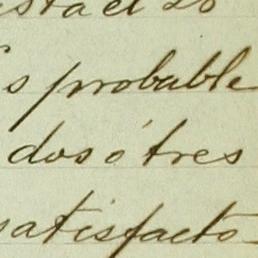 sta el 20
s probable
dos ó tres
satisfacto-